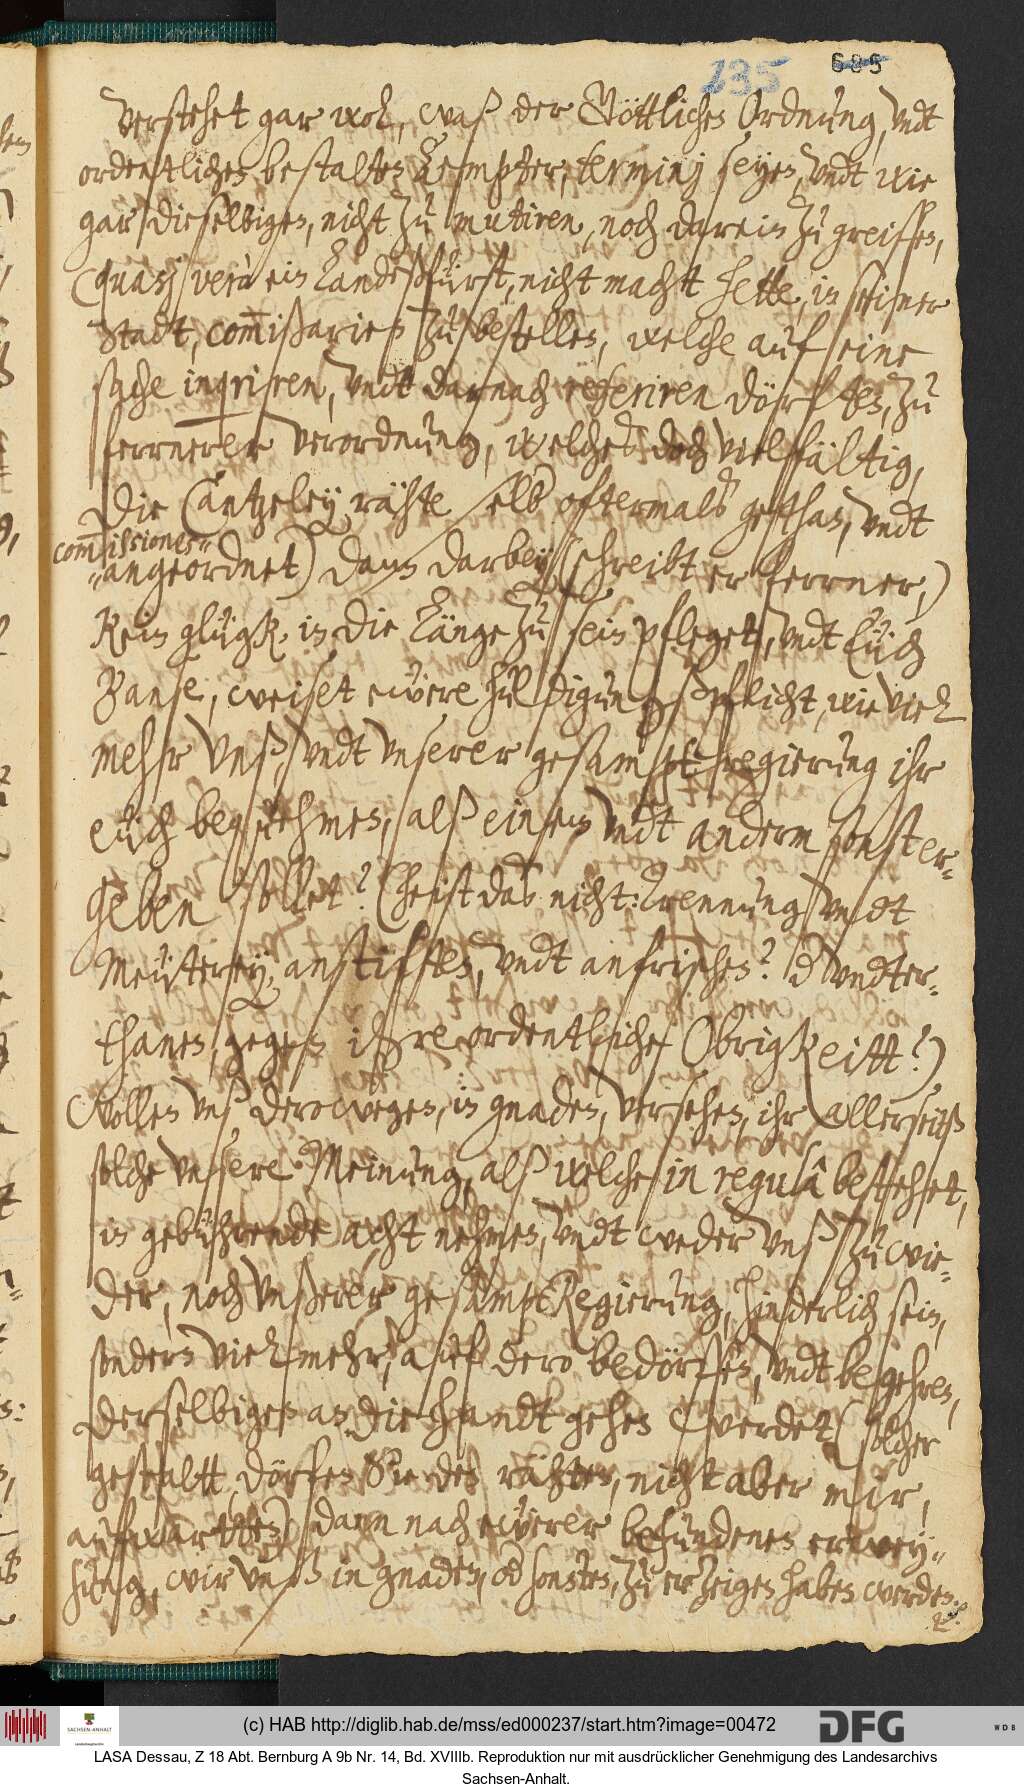 235 685
Verstehet gar wol, waß der Göttlichen Ordnung, vndt
ordentlichen bestalten Aempter, terminj seyen, vndt wie
gar dieselbigen, nicht zu mutiren, noch darein zu greiffen,
(quasj verò ein Landesfürst, nicht macht hette, in seiner
Stadt, com̅ißarien zu bestellen, welche auf eine
sache inqriren, vndt darnach referiren dörften, zu
fernerer verordnung, welches doch vielfältig,
die Cantzeley rähte selb oftermalß gethan, vndt
com̅issiones"
"angeordnet) dann darbey (schreibt er ferrner,)
Kein glügk, in die Länge zu sein pfleget, vndt Euch
Banse, weiset ewere huldigungspflicht, wie viel
mehr Vnß, vndt vnserer gesampt regierung ihr
euch beqwehmen, alß einem vndt anderm sonst er-
geben sollet? (heist das nicht: Trennung vndt
Meüterey, anstiften, vndt anfrischen? d vndter-
thanen, gegen ihre ordentliche Obrigkeitt?)
Wollen vnß derowegen, in gnaden, versehen, ihr allerseitß
solche vnsere Meinung, alß welche in regulâ bestehet,
in gebührende acht nehmen, vndt weder vnß zu wie-
der, noch vnßerer gesampt Regierung, hinderlich sein,
sondern vielmehr, auf dero bedörffen, vndt begehren,
derselbigen an die handt gehen werdet (solcher
gestaltt, dörfen Sie den rähten, nicht aber mir,
aufwartten) dann nach ewerer befundenen erwey-"
sung, wir vnß in gnaden, od sonsten, zu erzeigen haben werden.
(c) HAB http://diglib.hab.de/mss/ed000237/start.htm?image=00472
SACHSEN-ANHALT
DFG
WDB
LASA Dessau, Z 18 Abt. Bernburg A 9b Nr. 14, Bd. XVIIIb. Reproduktion nur mit ausdrücklicher Genehmigung des Landesarchivs
Sachsen-Anhalt.